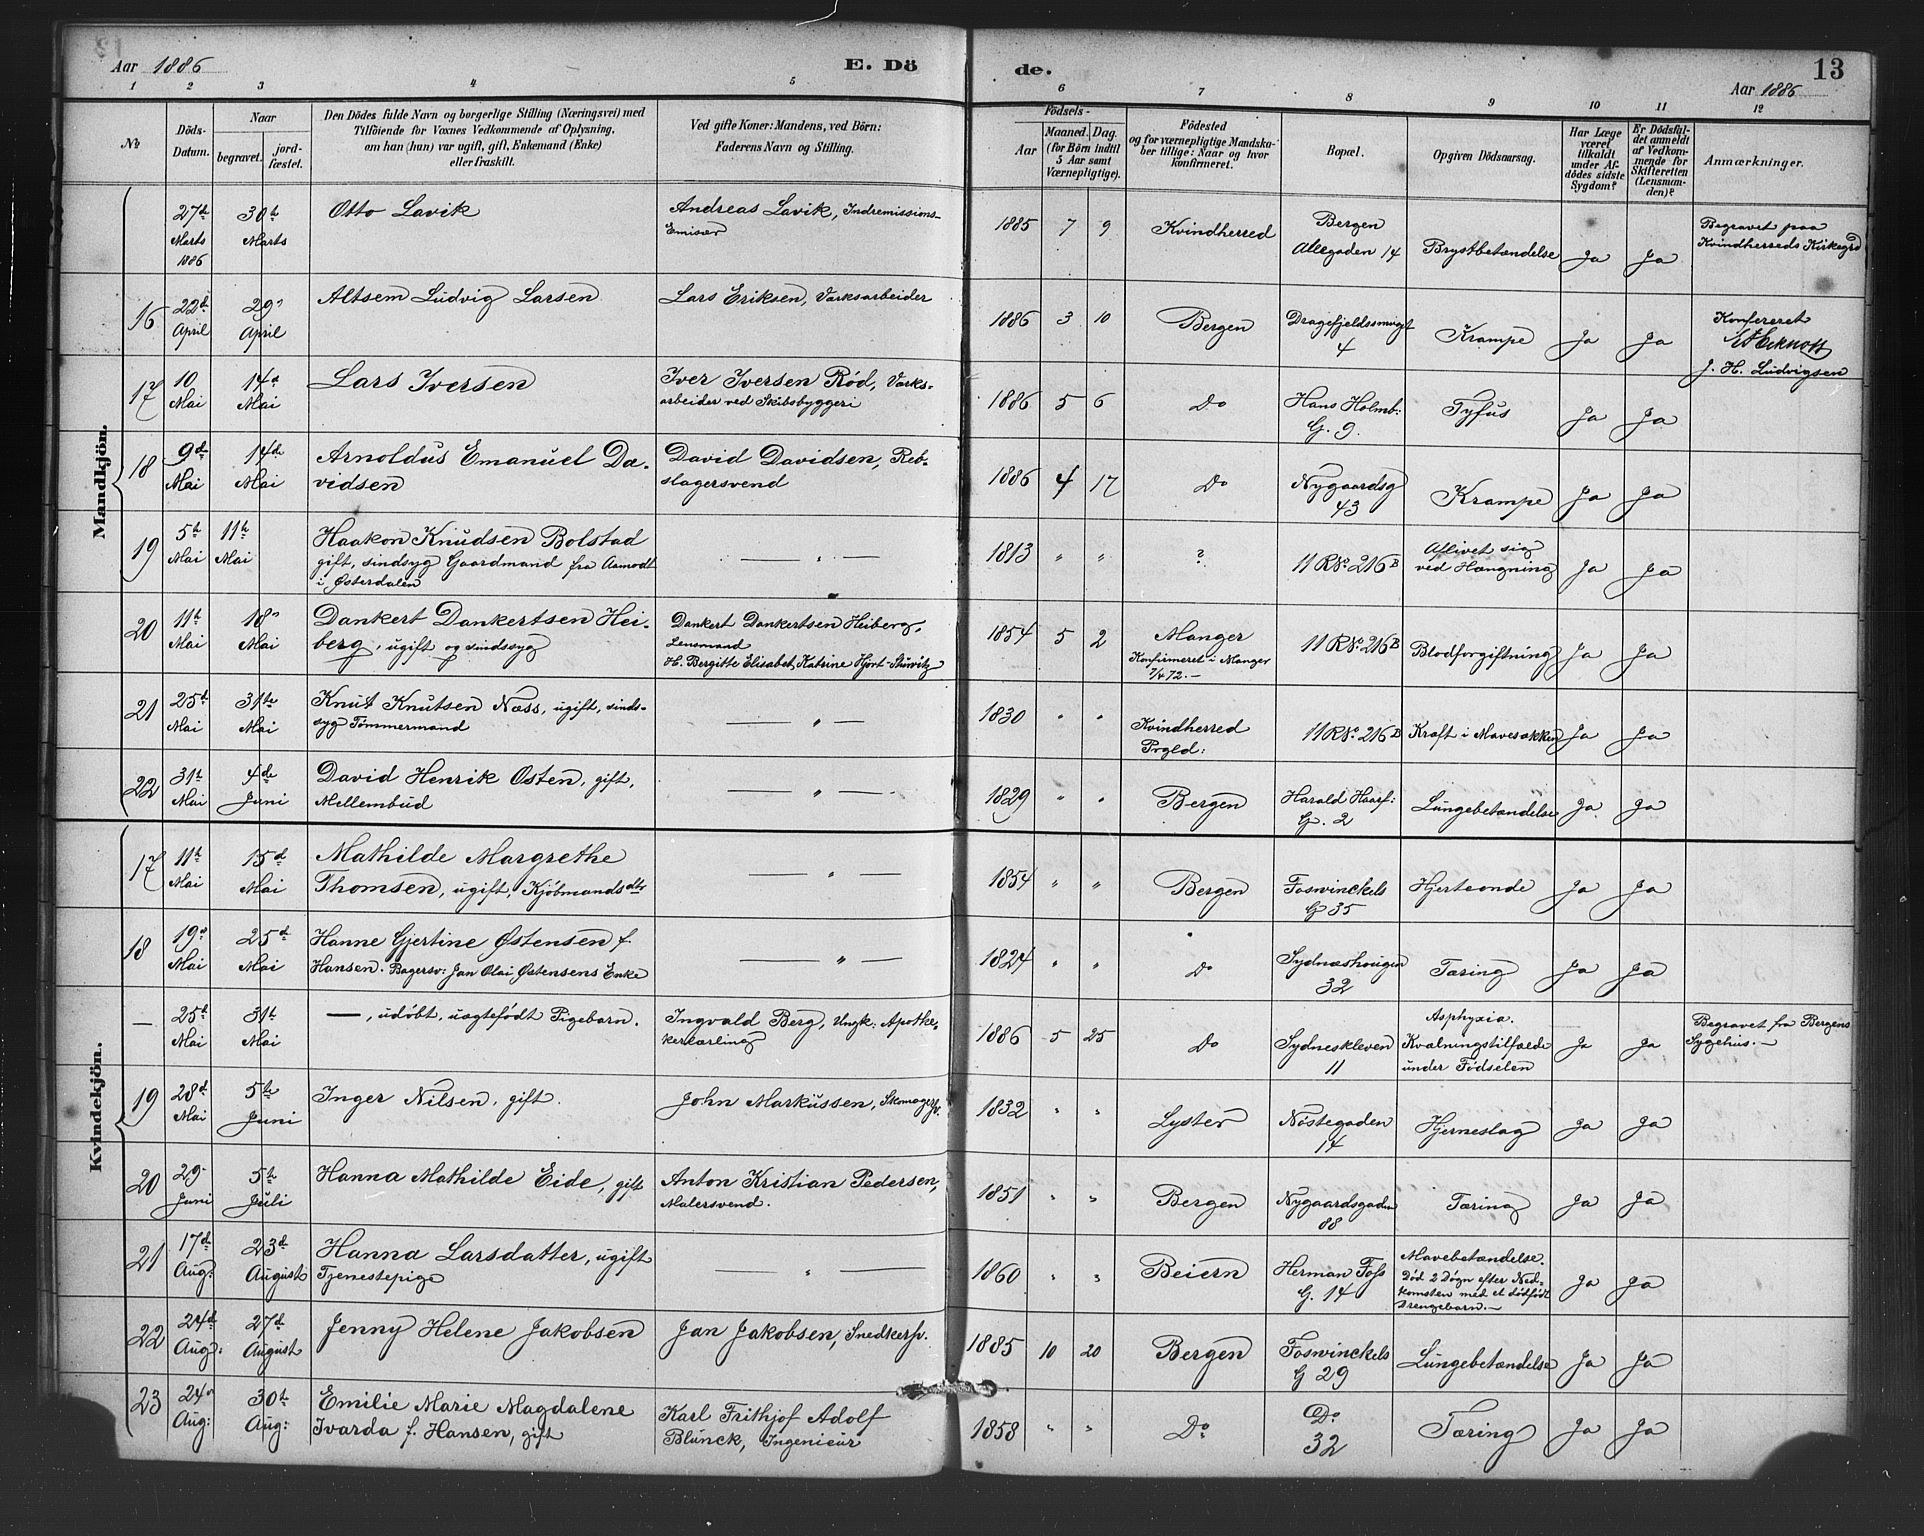 Aar 1886
E. Dö
de.
13
Aar 1886
1 2 3 4 5 6 7 8 9 10 11 12
No
Döds-
Datum.
Naar
begravet.
jord-
fæstet.
Den Dödes fulde Navn og borgerlige Stilling (Næringsvei) med
Tilföiende for Voxnes Vedkommende af Oplysning,
om han (hun) var ugift, gift, Enkemand (Enke)
eller fraskilt.
Ved gifte Koner: Mandens, ved Börn:
Faderens Navn og Stilling.
Födsels-
Aar
Maaned. Dag.
(for Börn indtil
5 Aar samt
Værnepligtige).
Födested
og for værnepligtige Mandska-
ber tillige: Naar og hvor
konfirmeret.
Bopæl.
Opgiven Dödsaarsag.
Har Læge
været
tilkaldt
under Af-
dödes sidste
Sygdom?
Er Dödsfal-
det anmeldt
af Vedkom-
mende for
Skifteretten
(Lensman-
den)?
Anmærkninger.
Mandkjön.
27de Marts 1886
30te Marts
Otto Lavik
Andreas Lavik, Indremissions-
Emisær
1885 7 9
Kvindherred
Bergen
Allegaden 14
Brystbetændelse
Ja Ja
Begravet paa
Kvindherreds Kirkegrd
16
22de April
29 April
Altsem Ludvig Larsen
Lars Eriksen, Værksarbeider
1886 3 10
Bergen
Dragefjeldssmuget
4
Krampe
Ja Ja
Konfereret
J. H. Ludvigsen
17
10 Mai
14d Mai
Lars Iversen
Iver Iversen Rød, Værks-
arbeider ved Skibsbyggeri
1886 5 6
Do
Hans Holmb:
G. 9.
Tyfus
Ja Ja
18
9de Mai
14de Mai
Arnoldus Emanuel Da-
vidsen
David Davidsen, Reb-
slagersvend
1886 4 17
Do
Nygaardsg
43
Krampe
Ja Ja
19
5te Mai
11te Mai
Haakon Knudsen Bolstad
gift, sindsyg Gaardmand fra Aamodt
i Østerdalen
— " —
1813 " "
?
11 R No 216 B
Aflivet sig
ved Hængning
Ja Ja
20
11te Mai
18 Mai
Dankert Dankertsen Hei-
berg, ugift og sindssyg
Dankert Dankertsen Heiberg,
Lensmand
H. Bergitte Elisabet, Katrine Hjort-
1854 5 2
Manger
Konfirmeret i Manger
7/4 72.—
11 R No 216 B
Blodforgiftning
Ja Ja
21
25d Mai
31te Mai
Knut Knutsen Næss, ugift, sinds-
syg Tømmermand
— " —
1830 " "
Kvindherred
Prgld:
11 R No 216 B
Kræft i Mavesækken
Ja Ja
22
31te Mai
4de Juni
David Henrik Osten, gift,
Mellembud
— " —
1829 " "
Bergen
Harald Haarf:
G. 2
Lungebetændelse
Ja Ja
Kvindekjön.
17
11te Mai
15d Mai
Mathilde Margrethe
Thomsen, ugift, Kjøbmandsdtr
— " —
1854 " "
Bergen
Foswinckels
G 35
Hjerteonde
Ja Ja
18
19d Mai
25de Mai
Hanne Gjertine Østensen f.
Hansen. Bagersv: Jan Olai Østensens Enke
— " —
1824 " "
Do
Sydnæshougen
32
Tæring
Ja Ja
—
25d Mai
31te Mai
—, udøbt, uægtefødt Pigebarn.
Ingvald Berg, Ungk: Apothe-
kerlærling
1886 5 25
Do
Sydneskleven
11
Asphyxia.
Kvælningstilfælde
under Fødselen
Ja Ja
Begravet fra Bergens
Sygehus.—
19
28d Mai
5te Juni
Inger Nilsen, gift.
John Markussen, Skomagersv.
1832 " "
Lyster
Nøstegaden
14
Hjerneslag
Ja Ja
20
29 Juni
5te Juli
Hanna Mathilde Eide, gift
Anton Kristian Pedersen,
Malersvend.
1851 " "
Bergen
Nygaardsgaden
88
Tæring
Ja Ja
21
17de Aug:
23d August
Hanna Larsdatter, ugift
Tjenestepige
— " —
1860 " "
Beiern
Herman Foss
G. 14
Mavebetændelse.
Død 2 Døgn efter Ned-
komsten med et dødfødt
Drengebarn.—
Ja Ja
22
24d Aug:
27de August
Jenny Helene Jakobsen
Jan Jakobsen, Snedkersv.
1885 10 20
Bergen
Foswinckels
G 29
Lungebetændelse
Ja Ja
23
24 Aug:
30te Aug:
Emilie Marie Magdalene
Ivarda f. Hansen, gift
Karl Frithjof Adolf
Blunck, Ingenieur
1858 " "
Do
Do
32
Tæring
Ja Ja